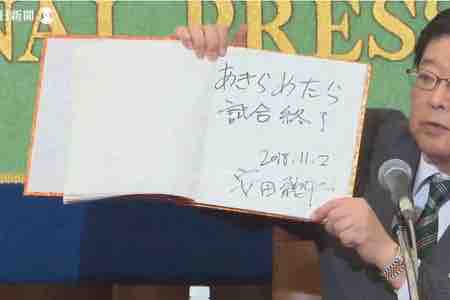 日新聞
NAL PRESS
あきらめたら
試合終了
2018.11.2
田龍